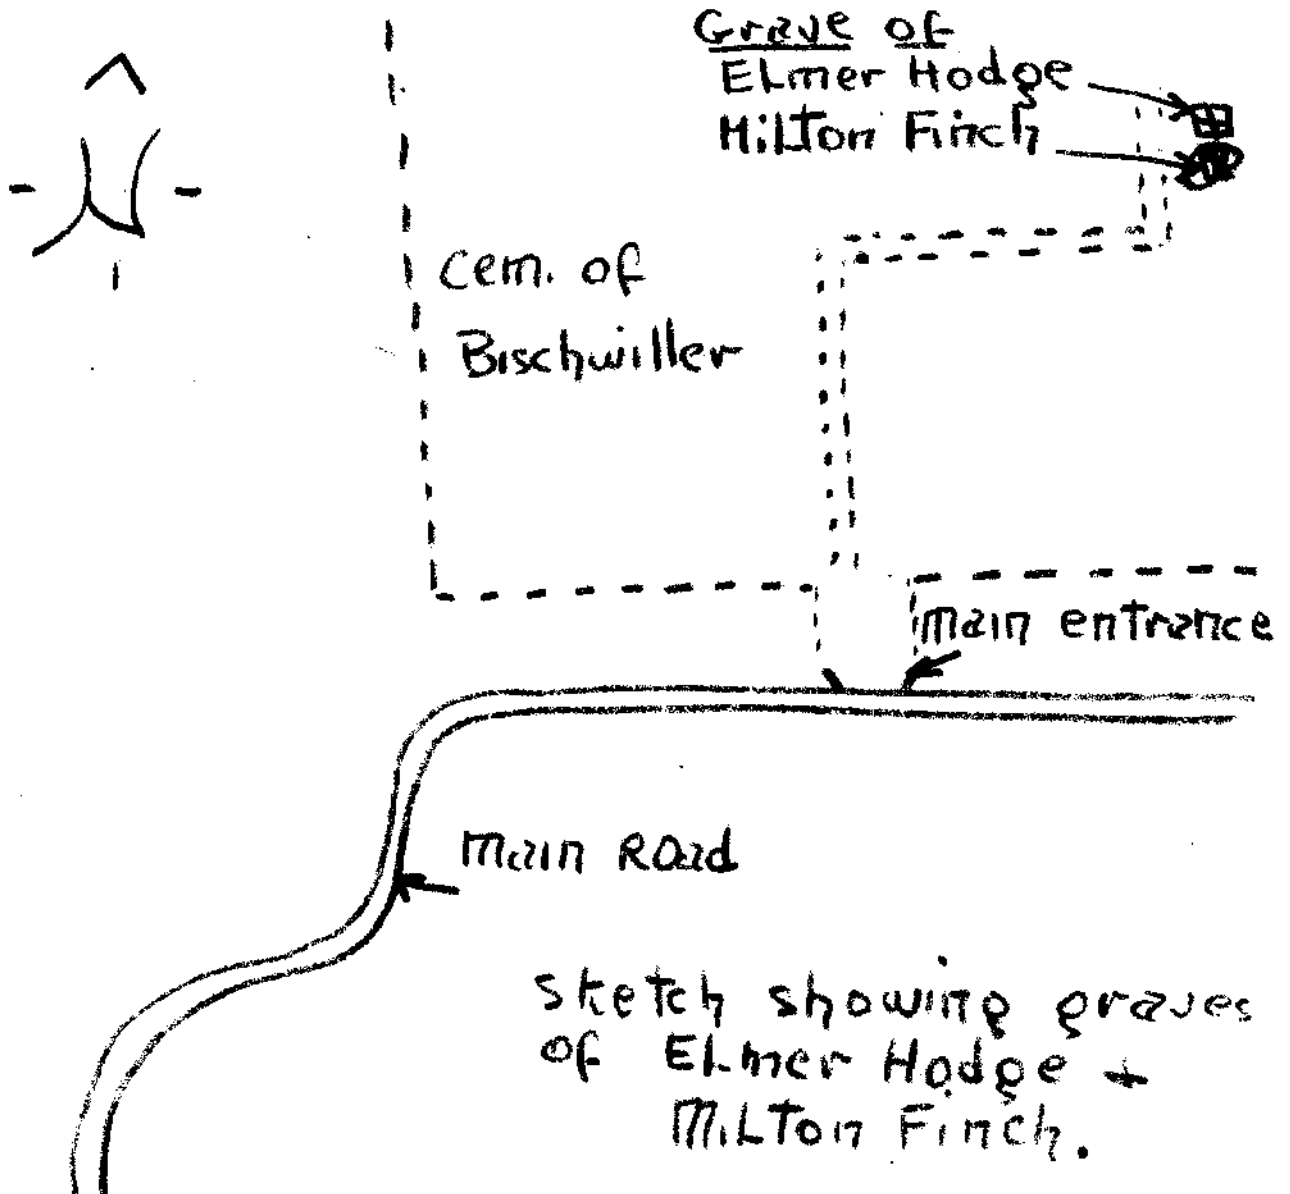 Grave of
Elmer Hodge
Milton Finch
Cem. of
Bischwiller
Main entrance
Main Road
Sketch showing graves
of Elmer Hodge +
Milton Finch.